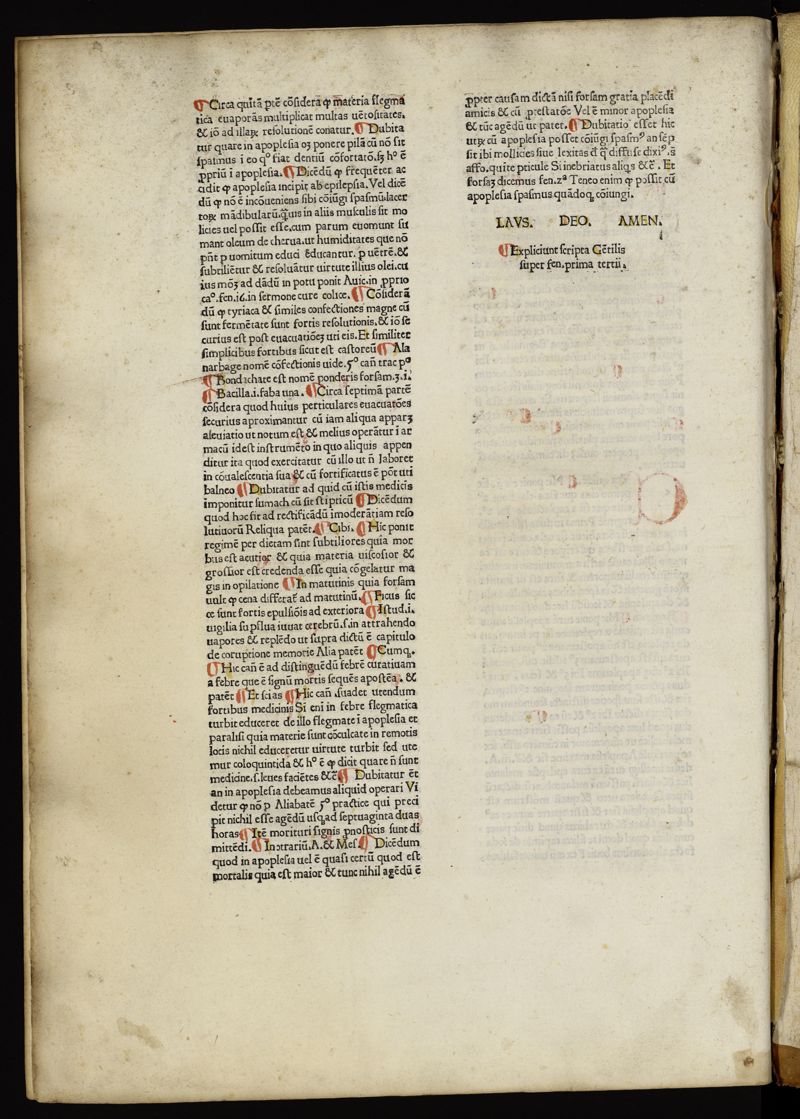 ¶Circa quītā ptē cōsidera ꝙ materia flegma
tica euaporās multiplicat multas uētositates.
& iō ad illaꝝ resolutionē conatur. ¶Dubita
tur quare in apoplesia oꝫ ponere pilā cū nō sit
spasmus i eo qº fiat dentiū cōfortatō. sꝫ hº ē
ꝓpriū i apoplesia. ¶Dicēdū ꝙ frequēter ac
cidit ꝙ apoplesia incipit ab epilepsia. Vel dicē
dū ꝙ nō ē incōueniens sibi cōiūgi spasmū. lacer
toꝝ mādibularū. q̄uis in aliis musculis sit mo
licies uel possit esse. cum parum euomunt su
mant oleum de cherua. ut humiditates que nō
pn̄t p uomitum educi educantur. p uētrē. &
subtiliētur & resoluātur uirtute illius olei. cu
ius moꝫ ad dādū in potu ponit Auic. in ꝓprio
caº. fen. i6. in sermone cure colice. ¶Cōsiderā
dū ꝙ tyriaca & similes confectiones magne cū
sunt fermētate sunt fortis resolutionis. & iō se
curius est post euacuatiōeꝫ uti eis. Et similiter
simplicibus fortibus sicut est castoreū ¶Ala
narbage nomē cōfectionis uide. 5º can̄ trac pº
¶Bondichate est nomē ponderis forsam. ʒ. i.
¶Bacilla. i. faba una. ¶Circa septimā partē
cōsidera quod huius perticulares euacuatōes
securius aproximantur cū iam aliqua apparꝫ
aleuiatio ut notum est & melius operātur i ar
macū idest instrumēto in quo aliquis appen
ditur ita quod exercitatur cū illo ut n̄ laboret
in cōualescentia sua & cū fortificatus ē pōt uti
balneo ¶Dubitatur ad quid cū istis medicis
imponitur sumach cū sit stipticū ¶Dicēdum
quod hoc fit ad rectificādū imoderātiam reso
lutiuorū Reliqua patēt. ¶Cibi. ¶Hic ponit
regimē per dietam sint subtiliores quia mor
bus est acutior & quia materia uiscosior &
grossior est credenda esse quia cōgelatur ma
gis in opilatione ¶In matutinis quia forsam
uult ꝙ cena differat̄ ad matutinū. ¶Ficus sic
ce sunt fortis epulsiōis ad exteriora ¶Istud. i.
uigilia supflua iuuat cerebrū. s. in attrahendo
uapores & replēdo ut supra dictū ē capitulo
de coruptione memorie Alia patēt ¶Cumq̨.
¶Hic can̄ ē ad distinguēdū febrē curatiuam
a febre que ē signū mortis sequēs apostēa. &
patēt ¶Et scias ¶Hic can̄ . suadet utendum
fortibus medicinis Si eni in febre flegmatica
turbit educeret de illo flegmate i apoplesia et
paralisi quia materie sunt cōculcate in remotis
locis nichil educeretur uirtute turbit sed ute
mur coloquintida & hº ē ꝙ dicit quare n̄ sunt
medicine. s. leues faciētes &c̄ ¶ Dubitatur ēt
an in apoplesia debeamus aliquid operari Vi
detur ꝙ nō p Aliabatē 5º practice qui preci
pit nichil esse agēdū usq̨ ad septuaginta duas
horas ¶Itē morituri signis pnosticis sunt di
mittēdi. ¶In ɔtrariū. A. & Mes. ¶Dicēdum
quod in apoplesia uel ē quasi certū quod est
mortalis quia est maior & tunc nihil agēdū ē
ꝓpter causam dictā nisi forsam gratia placēdi
amicis & cū ꝓtestatōe Vel ē minor apoplesia
& tūc agēdū ut patet. ¶Dubitatio esset hic
utꝝ cū apoplesia posset cōiūgi spasmꝰ an sēp
sit ibi mollicies siue lexitas
affo. quīte pticule Si inebriatus aliq̄s &c̄ . Et
forsaꝫ dicemus fen. 2ª Teneo enim ꝙ possit cū
apoplesia spasmus quādoq̨ cōiungi.
LAVS. DEO. AMEN.
¶Expliciunt scripta Gētilis
super fen. prima tertii.